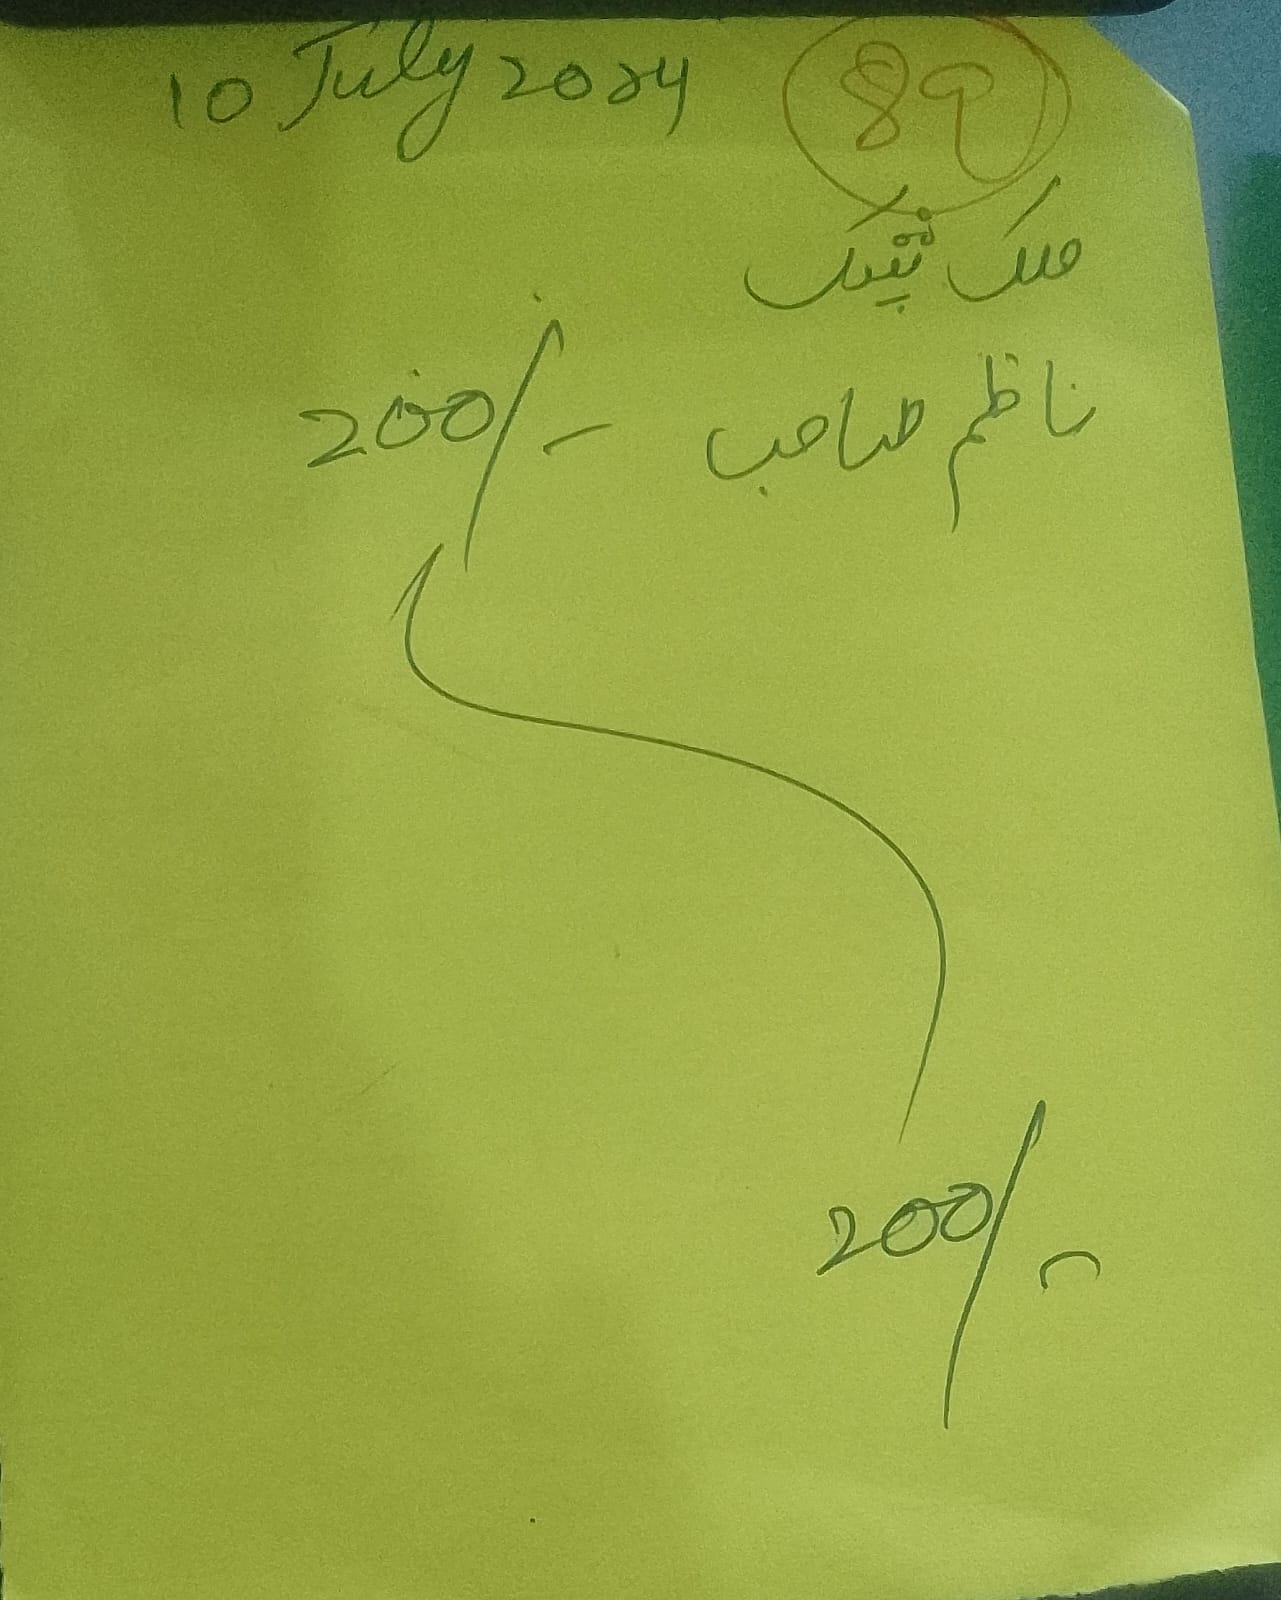 10 July 2024
89
ملک شیک
ناظم صاحب 200/-
200/-